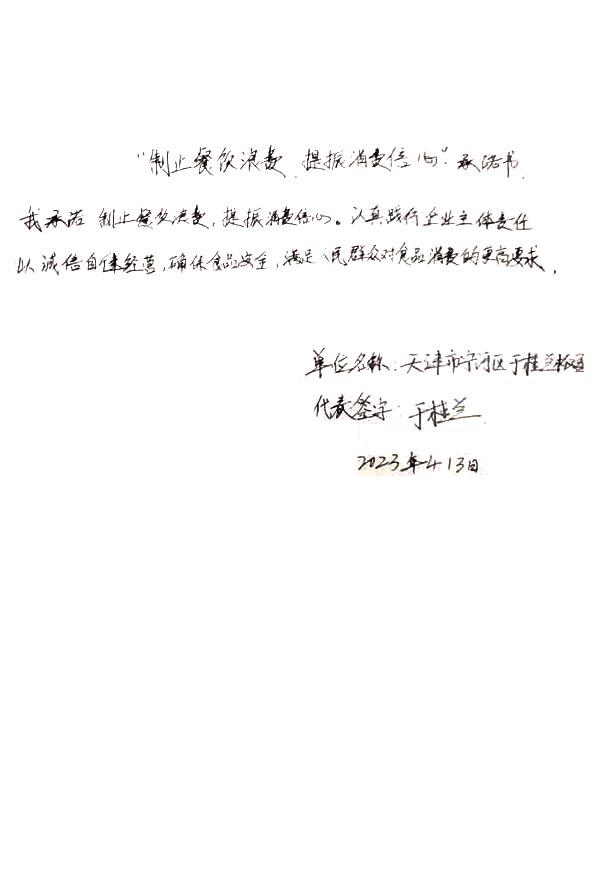 “制止餐饮浪费 提振消费信心”承诺书
我承诺 制止餐饮浪费，提振消费信心。认真践行企业主体责任
以诚信自律经营，确保食品安全，满足人民群众对食品消费的更高要求。
单位名称：天津市宁河区于桂兰
代表签字：于桂兰
2023年4 13日